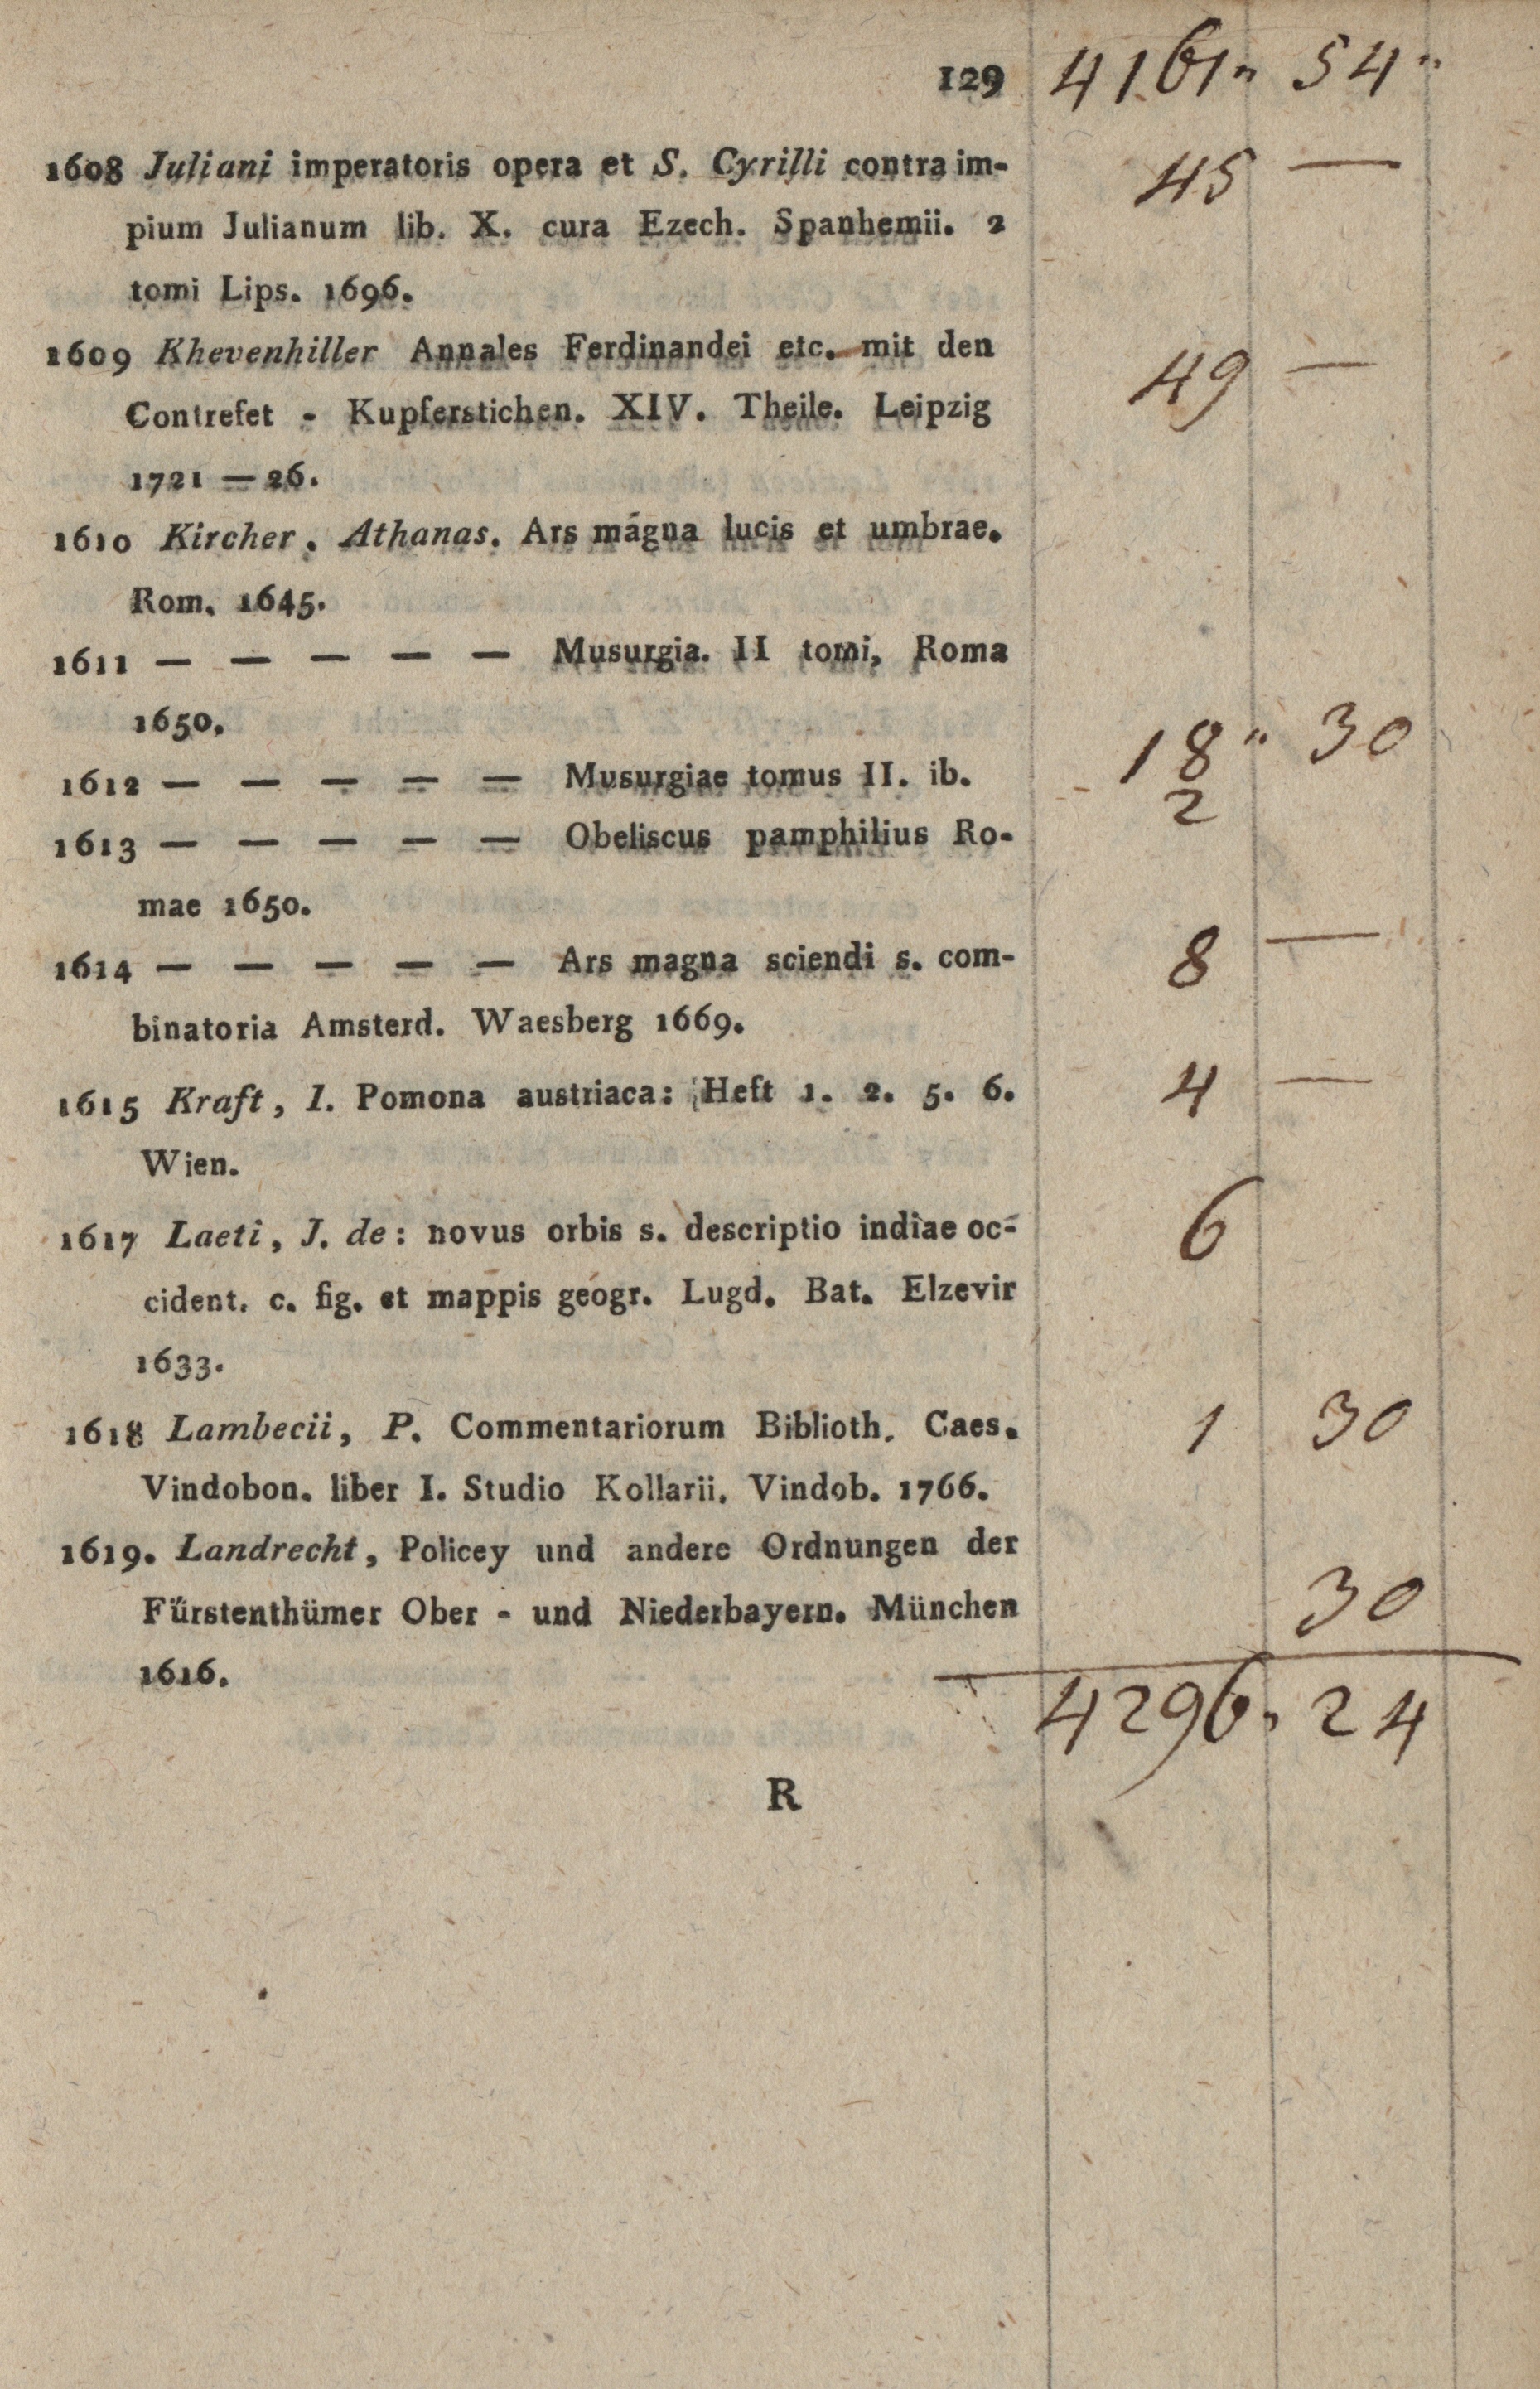 129 4161" 54"
1608 Juliani imperatoris opera et S. Cyrilli contra im- 45 —
pium Julianum lib. X. cura Ezech. Spanhemii. 2
tomi Lips. 1696.
1609 Khevenhiller Annales Ferdinandei etc. mit den 49 —
Contrefet - Kupferstichen. XIV. Theile. Leipzig
1721 — 26.
1610 Kircher, Athanas. Ars magna lucis et umbrae.
Rom. 1645.
1611 — — — — — Musurgia. II tomi, Roma
1650. 18" 30
1612 — — — — — Musurgiae tomus II. ib. 2
1613 — — — — — Obeliscus pamphilius Ro-
mae 1650.
1614 — — — — — Ars magna sciendi s. com- 8 —
binatoria Amsterd. Waesberg 1669.
1615 Kraft, I. Pomona austriaca: Heft 1. 2. 5. 6. 4 —
Wien.
1617 Laeti, J. de: novus orbis s. descriptio indiae oc- 6
cident. c. fig. et mappis geogr. Lugd. Bat. Elzevir
1633.
1618 Lambecii, P. Commentariorum Biblioth. Caes. 1 30
Vindobon. liber I. Studio Kollarii. Vindob. 1766.
1619. Landrecht, Policey und andere Ordnungen der
Fürstenthümer Ober - und Niederbayern. München 30
1616.
4296" 24
R